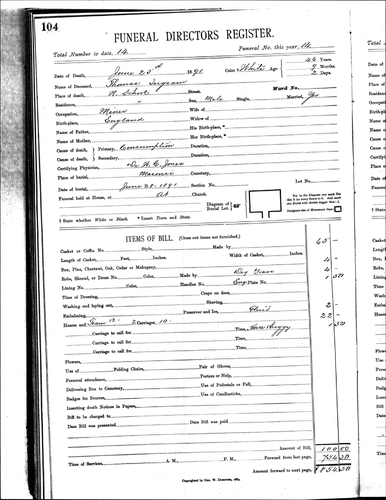 104
FUNERAL DIRECTORS REGISTER.
Total Number to date, 14 Funeral No. this year, 14
Date of Death, June 23rd 1891 Color † White Age 46 Years.
9 Months.
2 Days.
Name of Deceased, Thomas
Place of death, N. School Street. Ward No.
Residence, " Sex, Male Single. Married, Yes
Occupation, Miner Wife of
Birth-place, England Widow of
Name of Father, His Birth-place, *
Name of Mother, Her Birth-place, *
Cause of death, Primary, Consumption Duration,
Cause of death, Secondary, Duration,
Certifying Physician, Dr. W. C. Jones
Place of burial, Masonic Cemetery,
Date of burial, June 28. 1891 Section No. Lot No.
Funeral held at House, or At Church.
Diagram of Burial Lot.
† State whether White or Black. * Insert Town and State.
ITEMS OF BILL. (Cross out items not furnished.)
Casket or Coffin No. Style, Made by 65 -
Length of Casket, Feet, Inches. Width of Casket, Inches.
Box, Pine, Chestnut, Oak, Cedar or Mahogany, 4 -
Robe, Shroud, or Dress No. Color, Made by 4 -
Lining No. Color, Handles No. Plate No. 1 50
Time of Dressing, Crape on door,
Washing and laying out, Shaving, 2 -
Embalming, Preserver and Ice, Fluid
Hearse and Team 12- 2 Carriages 10- 22 -
Carriage to call for Time, 1 50
Carriage to call for Time,
Carriage to call for Time,
Flowers,
Use of Folding Chairs, Pair of Gloves,
Personal attendance, Posters or Help,
Delivering Box to Cemetery, Use of Pedestals or Pall,
Badges for Bearers, Use of Candlesticks,
Inserting death Notices in Papers,
Bill to be charged to
Date Bill was presented Date Bill was paid
Amount of Bill, 100 00
Time of Services, A. M., P. M., Forward from last page, 754 50
Amount forward to next page, 854 50
Copyrighted by Geo. W.